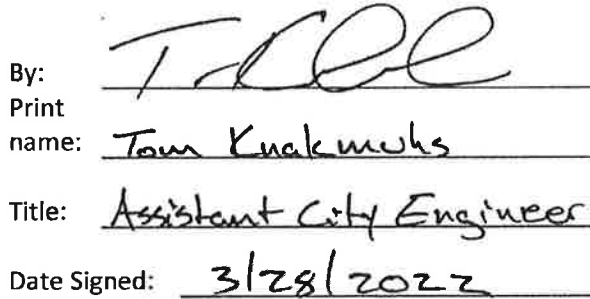 By:
Print
name: Tom Knakmuhs
Title: Assistant City Engineer
Date Signed: 3/28/2022